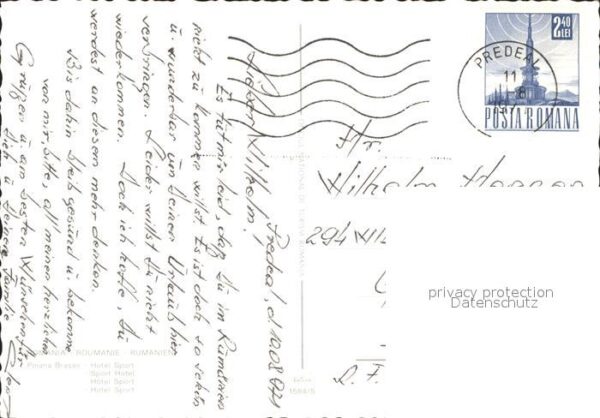 Predeal, d. 10.08.971
Lieber Wilhelm!
Es tut mir leid, daß Du in Rumänien
nicht zu kommen willst. Es ist doch so schön
u. wunderbar von Deinen Urlaub hier
verbringen. Leider willst Du nicht
wiederkommen. Doch ich hoffe, Du
werdest an diesem mehr denken.
Bis dahin bleib gesund u. bekomme
von mir, bitte, all meinen herzlichen
Grüßen u. am besten Wünschen für
Dich u. Deine Familie
ROUMANIE - RUMANIEN
Poiana Brașov - Hotel Sport
Sport Hotel
Hôtel Sport
Hotel Sport
2,40
LEI
POSTA ROMANA
PREDEAL
11
8
Hr.
Wilhelm
294
D.
privacy protection
Datenschutz